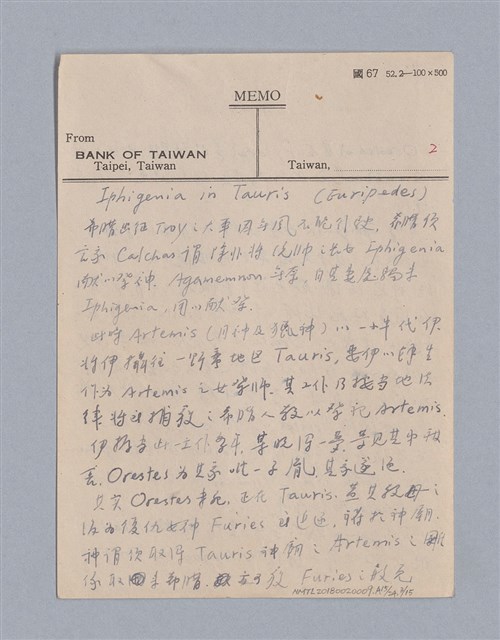 國 67 52.2—100×500
MEMO
From
BANK OF TAIWAN
Taipei, Taiwan
Taiwan,
2
Iphigenia in Tauris (Euripedes)
希臘出征Troy之大軍因守風不能行駛，希臘預
言家 Calchas 謂除非將統帥之女 Iphigenia
獻以祭神. Agamemnon
Iphigenia, 用以獻祭.
此時 Artemis (月神及獵神) 以一小牛代伊
將伊攝往一野蠻地區 Tauris, 要伊以終生
作為 Artemis 之女祭師. 其工作乃按當地法
律將被捕殺之希臘人殺以祭祀 Artemis.
伊擔當此一工作多年, 某晚得一夢, 夢見其弟被
害. Orestes 為其家唯一子胤, 其家遂絕.
其實 Orestes 未死, 正在 Tauris. 蓋其殺母之
後為復仇女神 Furies 所追逐, 禱於神廟.
神謂須取得 Tauris 神廟之 Artemis 之雕
像取來希臘. 方可 Furies 之
NMTL20180020009